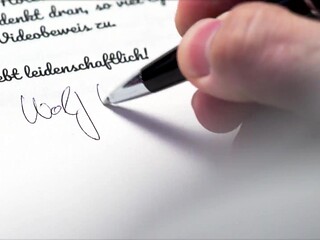 denkt dran, so viel
Videobeweis zu.
ebt leidenschaftlich!
Wolf